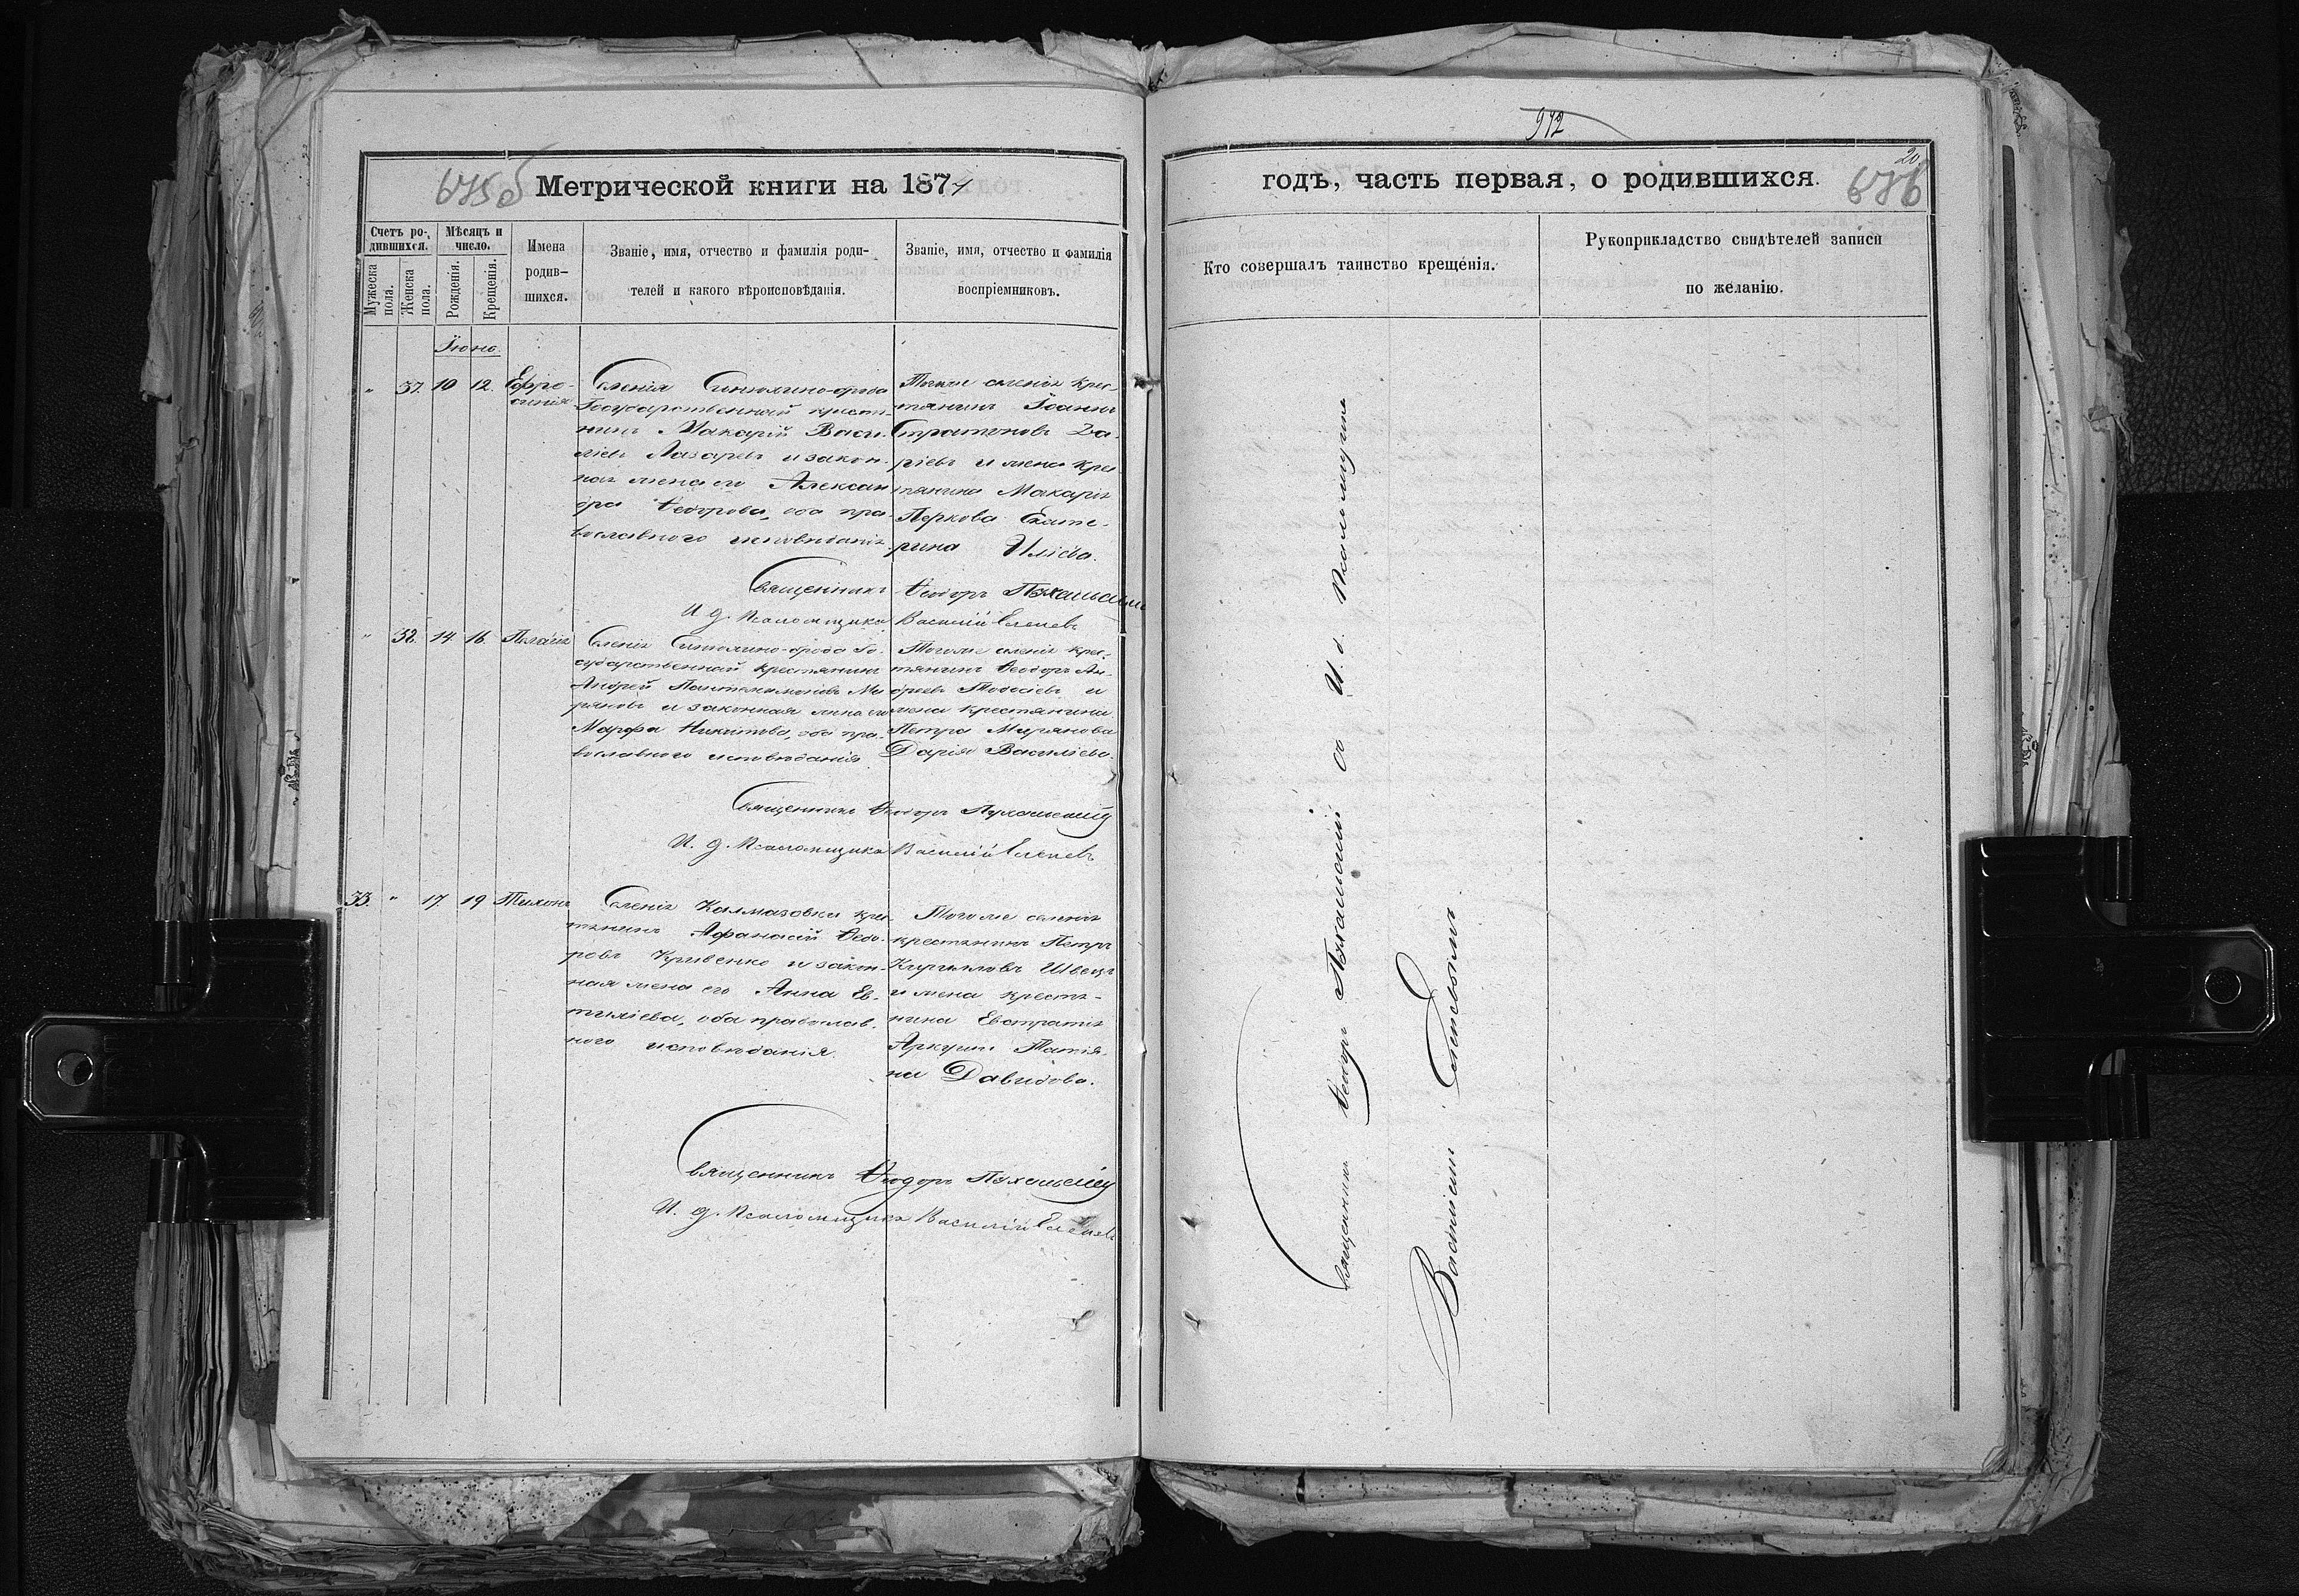 675 б
Метрической книги на 1874
Счетъ ро-
дившихся.
Мужеска пола.
Женска пола.
Мѣсяцъ и
число.
Рожденія.
Крещенія.
Имена
родив-
шихся.
Званіе, имя, отчество и фамилія роди-
телей и какого вѣроисповѣданія.
Званіе, имя, отчество и фамилія
воспріемниковъ.
Іюнь
" 37. 10 12. Ефро-
синія
Селенія
Государственный крестья-
нинъ Макарій Васи-
ліевъ Лазаревъ и закон-
ная жена его Алексан
дра Ѳеодорова, оба пра-
вославного исповѣданія.
Тогоже селенія крес-
тянинъ Іоаннъ
Стратоновъ Да-
ріевъ и жена крес-
тянина Макарія
Перкова Екате-
рина Иліева.
Священникъ Ѳеодоръ
И. д. Псаломщика Василій
" 32. 14. 16. Пелагія
Селенія Го-
сударственный крестянинъ
Андрей Пантелимоновъ Ми-
ряновъ и законная жена его
Марфа Никитова, оба пра-
вославного исповѣданія.
Тогоже селенія крес-
тянинъ Ѳеодоръ Ан-
дреевъ Тодосіевъ и
жена крестянина
Петра Мирянова
Дарія Василіева.
Священникъ Ѳеодоръ
И. д. Псаломщика Василій
33. " 17. 19 Тихонъ
Селенія Калмазовки кре-
тянинъ Афанасій Ѳедо-
ровъ Кривенко и закон-
ная жена его Анна Ев-
тихіева, оба православ-
ного исповѣданія.
Тогоже селенія
крестянинъ Петръ
Кирилловъ Швецъ
и жена крестя-
нина Евстратія
Аркуши Татія-
на Давидова.
Священникъ Ѳеодоръ
И. д. Псаломщика Василій
972
20.
годъ, часть первая, о родившихся.
676
Кто совершалъ таинство крещенія.
Рукоприкладство свидѣтелей записи
по желанію.
Священникъ Ѳеодоръ со И. д. Псаломщика
Василіемъ